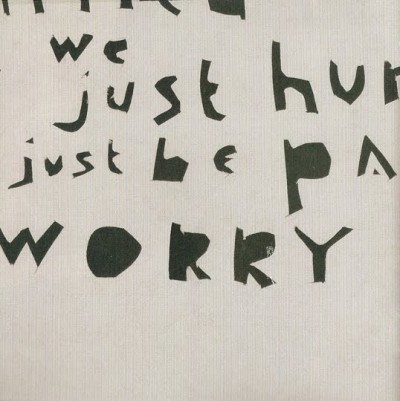 we
just hur
just be pa
WORRY